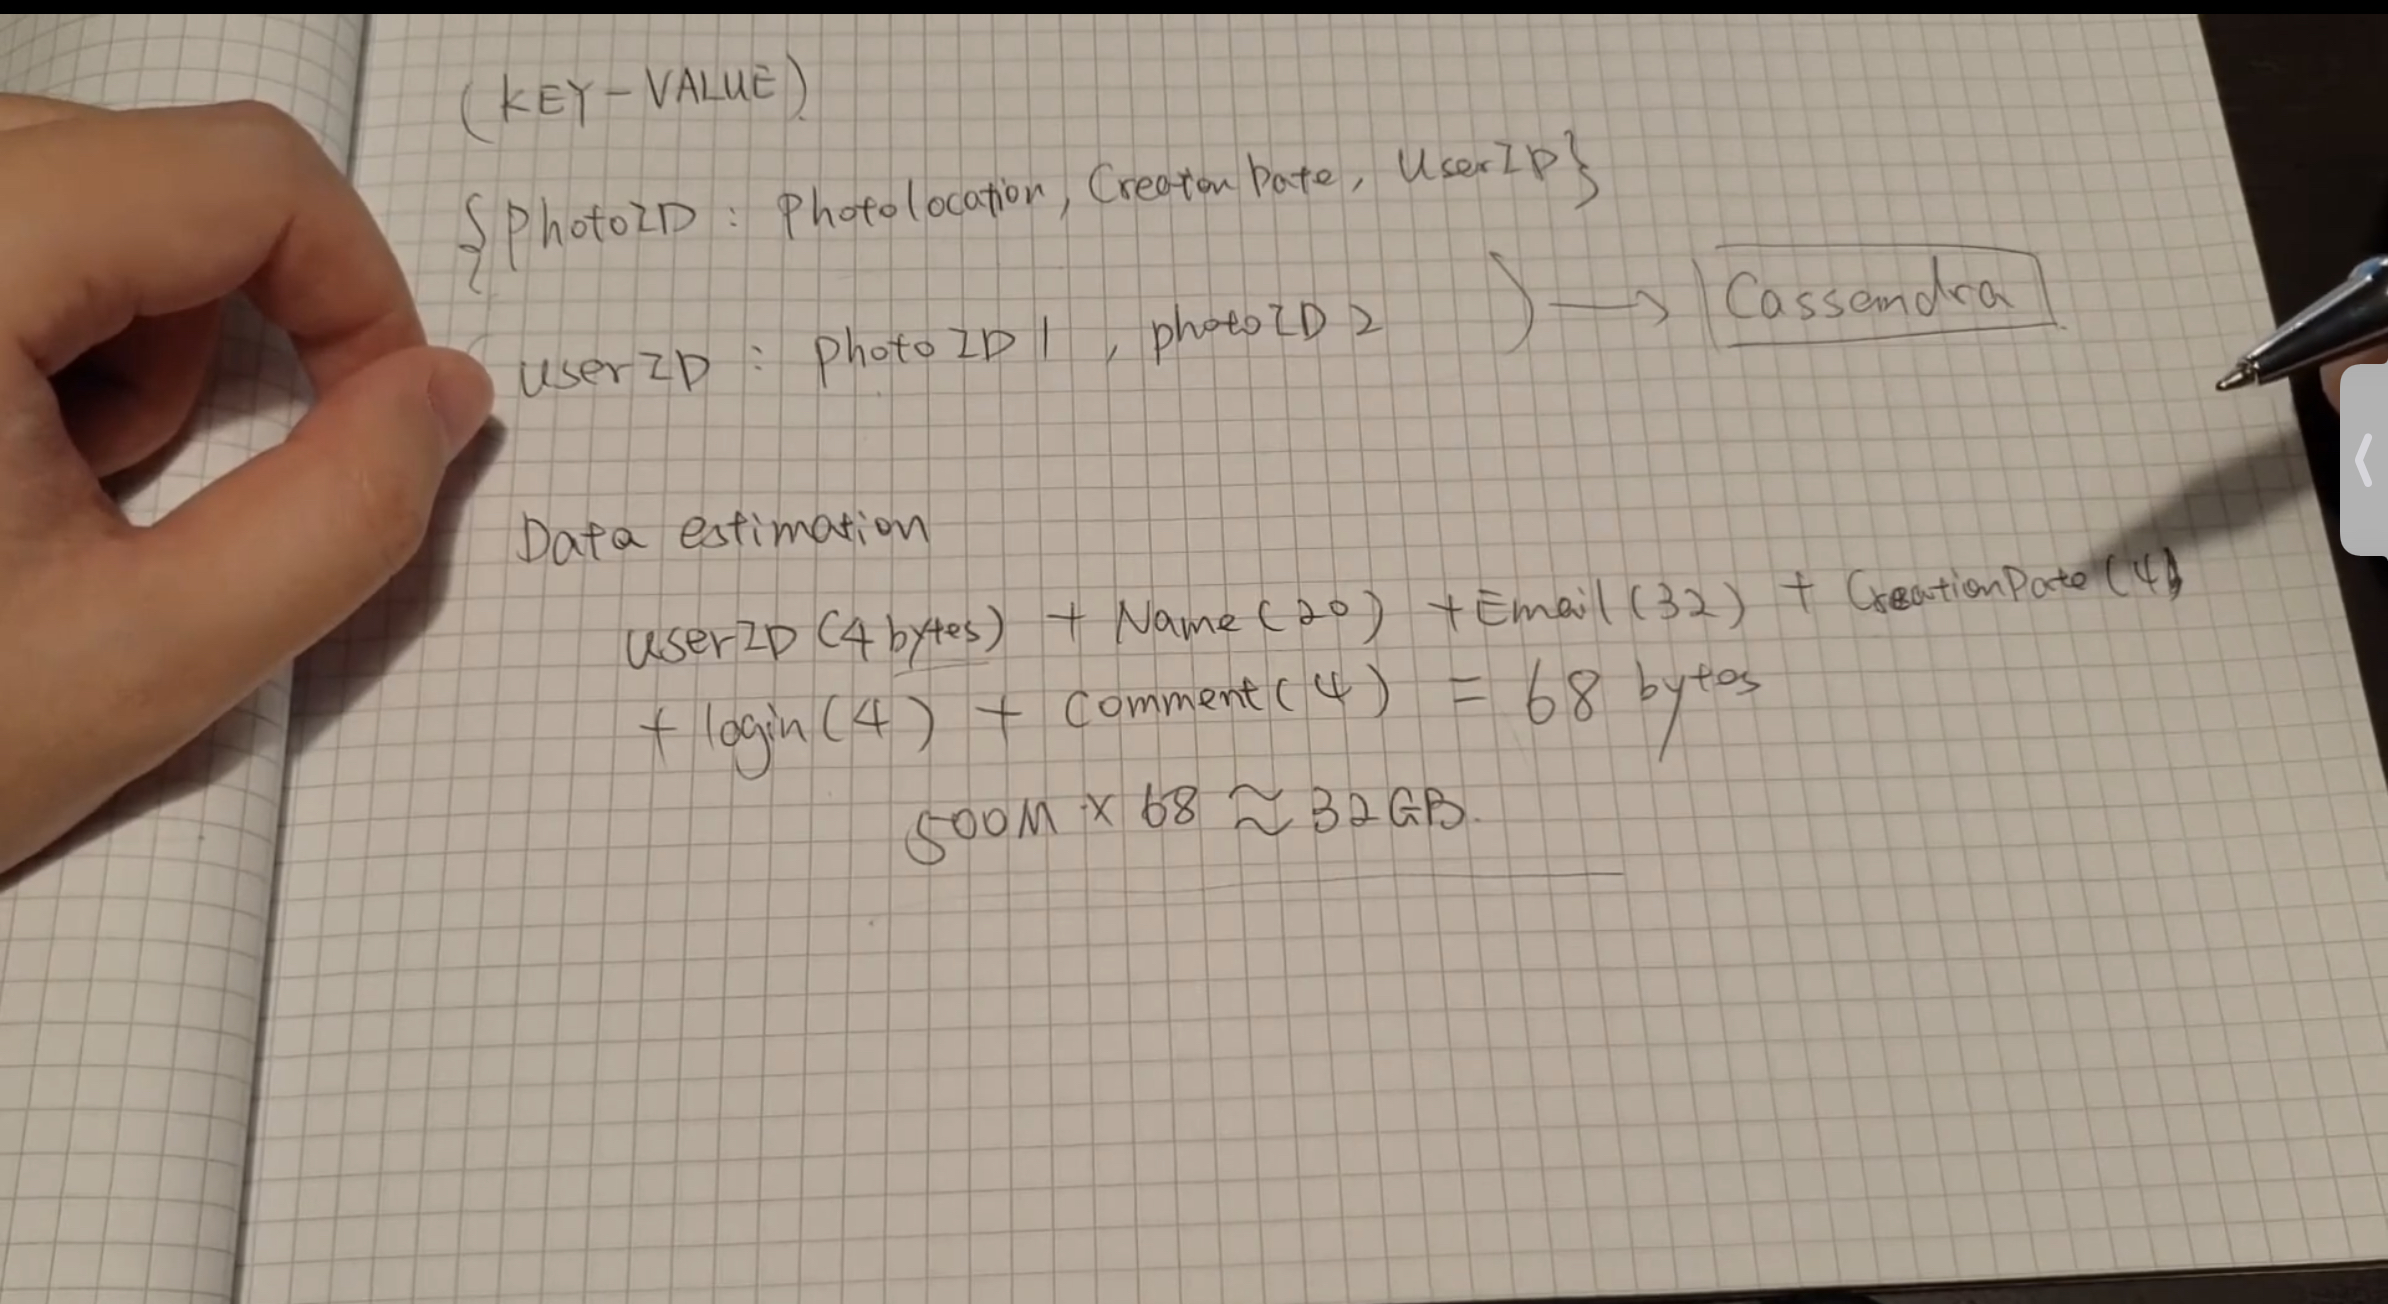 (KEY-VALUE)
{PhotoID : Photolocation, Creation Date, UserID}
userID : PhotoID1 , photoID2
→ Cassandra
Data estimation
userID (4 bytes) + Name (20) + Email (32) + CreationDate (4)
+ login (4) + Comment (4) = 68 bytes
500M × 68 ≈ 32GB.